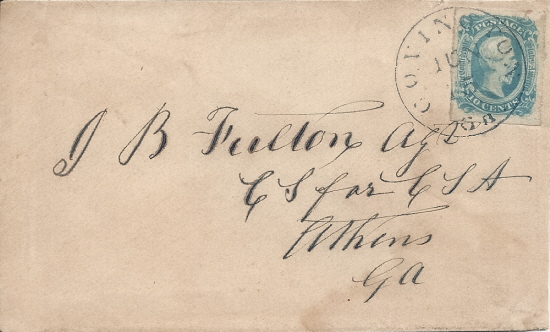 COVIN
10
POSTAGE
CENTS
J B Fulton Agt
CS for CSA
Athens
GA